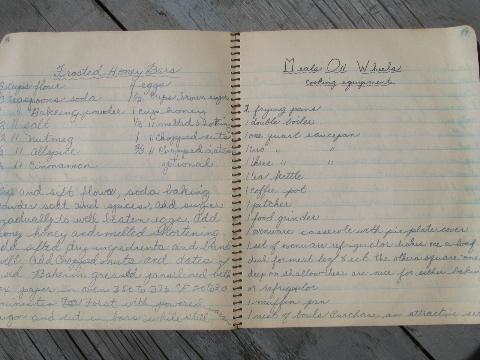 Frosted Honey Bars
cups flour 4 eggs
teaspoons soda cups brown sugar
" Bakeing powder 1 cup honey
" salt melted shortning
" Nutmeg 1 " Chopped nuts
" Allspice
" Cinnamon optional
and sift flour, soda baking
powder salt and spices, add sugar
gradually to well beaten eggs, add
honey and melted shortening
add sifted dry ingredients and blend
well. Add Chopped nuts and dates if
used. Bake in greased pan lined with
wax paper in oven 350 to 375 °F
minutes Frost with powered
sugar and cut in bars while still
Meals On Wheels
cooking equipment
2 frying pans
1 double boiler
1 one quart saucepan
1 two " "
1 three " "
1 tea kettle
1 coffee pot
1 pitcher
1 food grinder
1 ovenware casserole with pie plate cover
1 set of ovenware refrigerator dishes one a loaf
dish for meat loaf & ect. the others square ones
deep or shallow these are nice for either baking
or refrigator
1 muffin pan
1 nest of bowls Purchase an attractive set